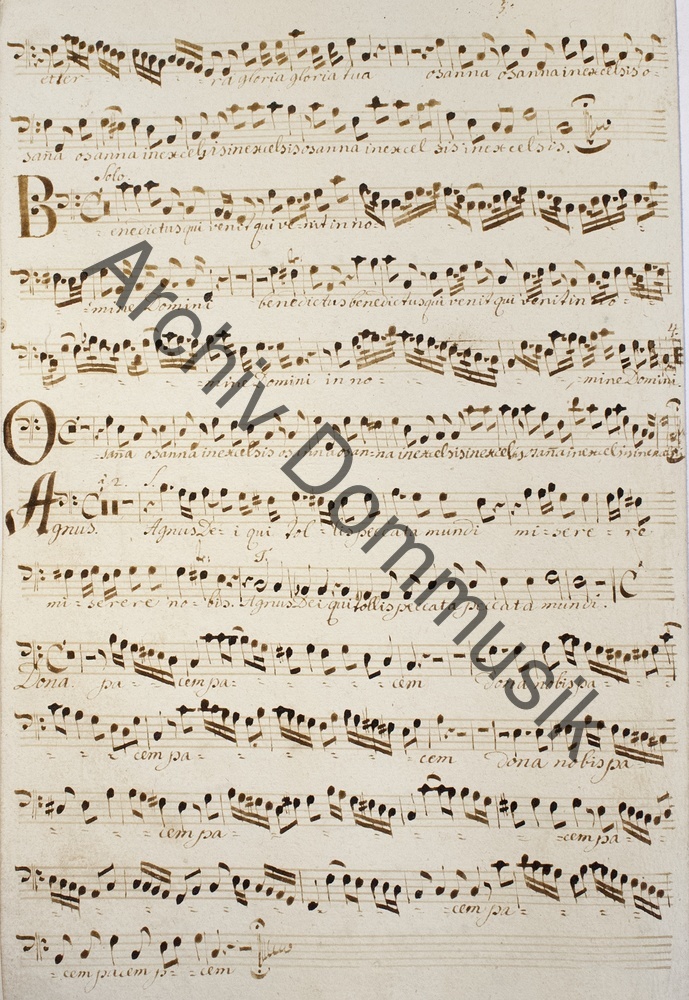 et ter = = = ra gloria gloria tua osanna osanna in excelsis o =
sana osanna in excelsis in excelsis osanna in excel sis in excelsis.
Solo.
Benedictus qui venit qui venit in no = = =
= mine Domini benedictus benedictus qui venit qui venit in no =
= = = = mine Domini in no = = = = mine Domini
Osana osanna in excelsis osanna osan = na in excelsis in excelsis
Agnus. Agnus De = i qui tol = lis peccata mundi mi = sere = re
mi = serere no = bis. Agnus Dei qui tollis peccata peccata mundi.
Dona pa = cem pa = = = cem dona nobis pa =
= = cem pa = = = = cem dona nobis pa =
= = cem pa = = = = = cem pa =
= = = = = = = = cem pa = =
= cem pa cem p = cem
Archiv Dommusik